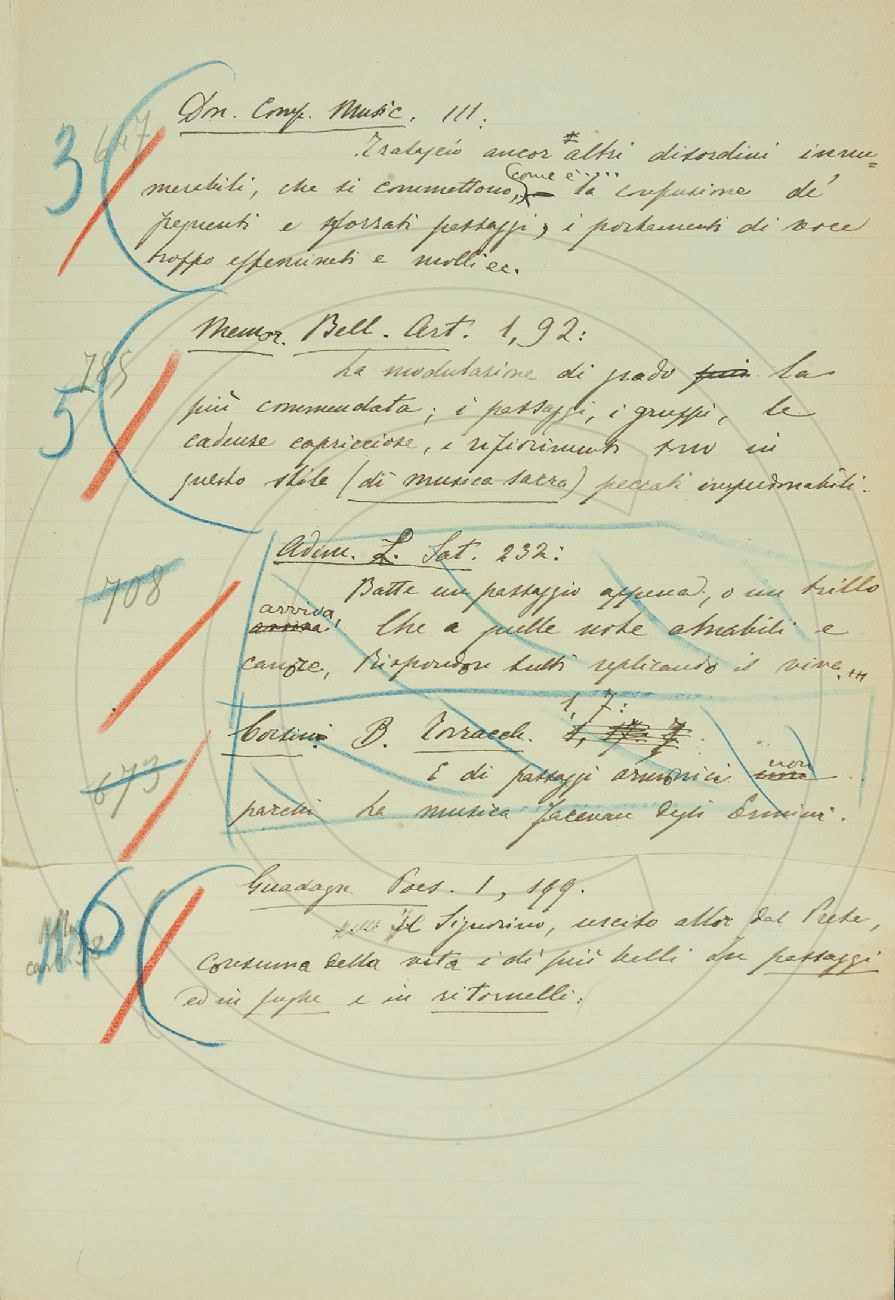 3 647
Don. Comp. Music. III.
Tralascio ancor altri disordini innu=
merabili, che si commettono, come è..... la confusione de'
frequenti e sforzati passaggi, i portamenti di voce
troppo effeminati e molli ec.
5 785
Memor. Bell. Art. 1, 92:
La modulazione di grado più la
più commendata; i passaggi, i gruppi, le
cadenze capricciose, i rifiorimenti sono in
questo stile (di musica sacra) peccati imperdonabili.
708
Adim. L. Sat. 232:
Batte un passaggio appena, o un trillo
arriva
Che a quelle note amabili e
canore, Rispondon tutti replicando il viva.
673
1, 7:
Corsin. B. Torracch.
E di passaggi armonici non
parchi La musica facevan degli Ermini.
6
Guadagn. Poes. 1, 199.
Il Signorino, uscito allor dal Prete,
consuma della vita i dì più belli In passaggi
ed in fughe e in ritornelli.